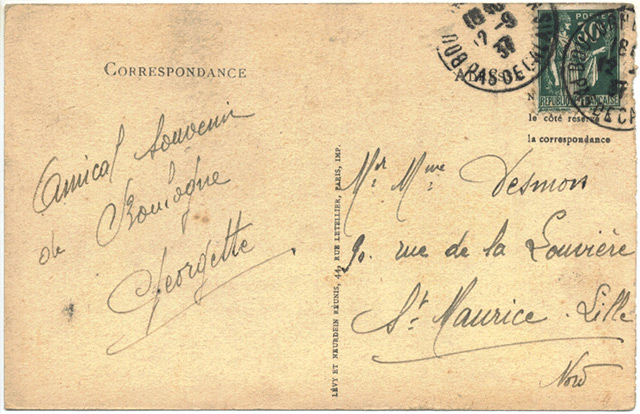 CORRESPONDANCE
Amical souvenir
de Boulogne
Georgette
LÉVY ET NEURDEIN RÉUNIS, 44, RUE LETELLIER, PARIS, IMP.
12-9
37
PAS DE CALAIS
POSTES
RÉPUBLIQUE FRANÇAISE
le côté réservé
la correspondance
Mr Mme Desmon
90. rue de la Louvière
St Maurice. Lille
Nord